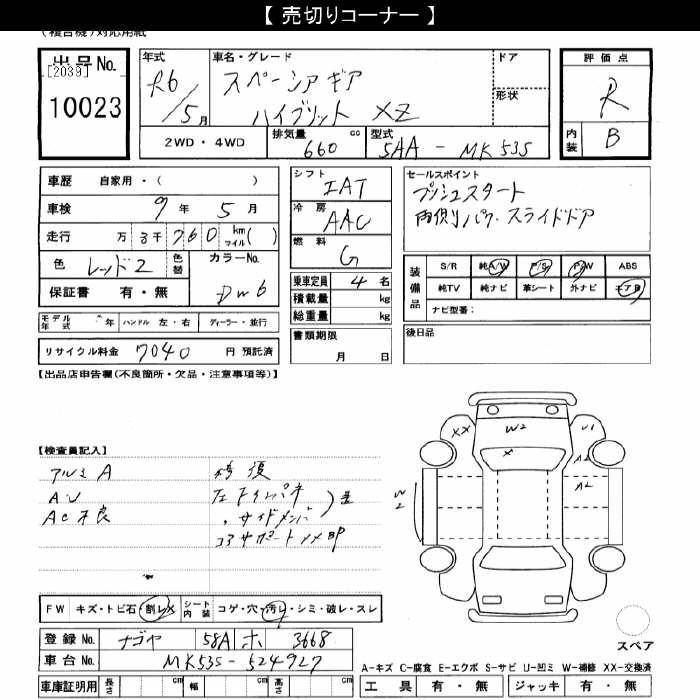 【 売切りコーナー 】
(複合機)対応用紙
出品No.
[2039]
10023
年式
R6/5月
車名・グレード
スペーシアギア
ハイブリット XZ
ドア
形状
評価点
R
内装 B
2WD・4WD
排気量 660 cc
型式 5AA - MK53S
車歴 自家用・( )
車検 9年 5月
走行 万 3千 760 km マイル( )
色 レッド2 色替
カラーNo.
保証書 有・無
DW6
モデル年式 年 ハンドル 左・右 ディーラー・並行
リサイクル料金 7040 円 預託済
シフト IAT
冷房 AAC
燃料 G
乗車定員 4 名
積載量 kg
総重量 kg
書類期限
月 日
セールスポイント
プッシュスタート
両側パワースライドドア
装備品
S/R 純A/W P/S P/W ABS
純TV 純ナビ 革シート 外ナビ エアB
ナビ型番:
後日品
【出品店申告欄(不良箇所・欠品・注意事項等)】
【検査員記入】
アルミA
AU
AC不良
修復
左 インパネ
〃 サイドメンバ
コアサポート XX BP
歪
XX
W2
U1
A2
A2
W2
X
FW キズ・トビ石・割レX
シート内装 コゲ・穴・汚レ・シミ・破レ・スレ
登録No. ナゴヤ 58A ホ 3668
車台No. MK53S-524927
車庫証明用 長さ cm 幅 cm 高さ cm
スペア
A-キズ C-腐食 E-エクボ S-サビ U-凹ミ W-補修 XX-交換済
工具 有・無 ジャッキ 有・無